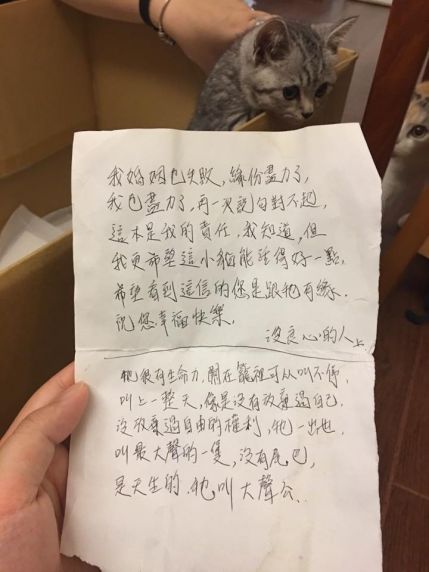 我婚姻已失敗,緣份盡力了,
我已盡力了,再一次說句對不起,
這本是我的責任,我知道,但
我更希望這小貓能活得好一點,
希望看到這信的您是跟牠有緣.
祝您幸福快樂,
沒良心的人上
牠很有生命力,關在籠裡可以叫不停,
叫上一整天,像是沒有放棄過自己,
沒放棄過自由的權利,牠一出世,
叫最大聲的一隻,沒有尾巴,
是天生的.牠叫大聲公..